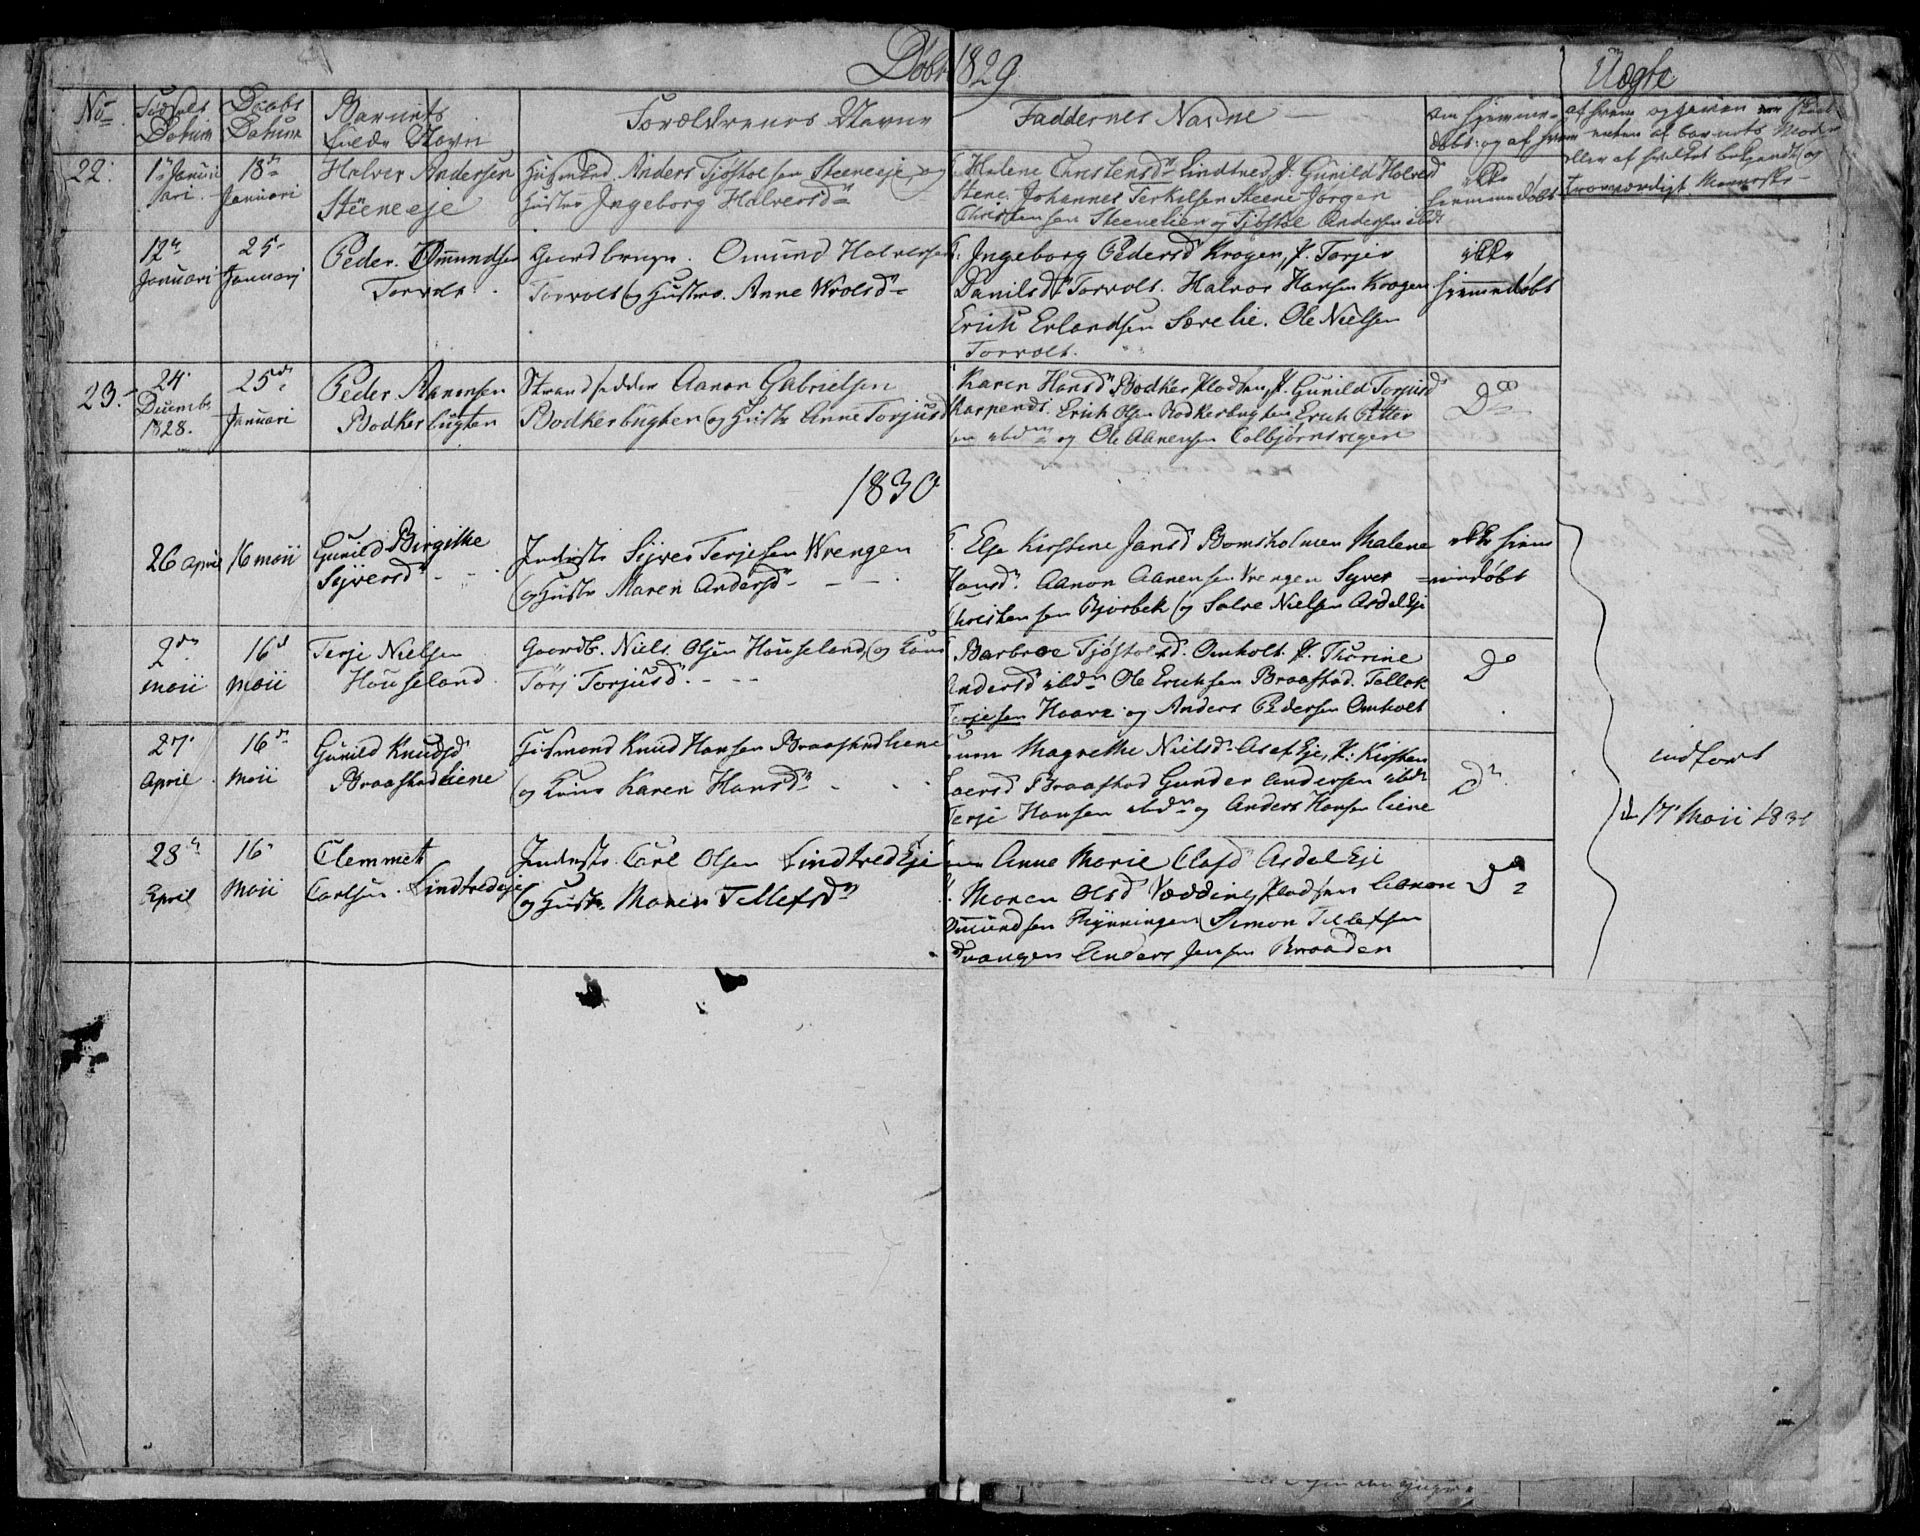 Døbt 1829
Uægte
No Fødsels Datum
Daabs Datum
Barnets fulde Navn
Forældrenes Navne
Faddernes Navne
om hjemmedøbt og af hvem
af hvem opgaven enten af barnets Moder eller af hvilket bekjendt og troeværdigt Menneske
22. 1 Januari 18 Januari
Halver Andersen Steeneeje
Husmand Anders Tjøstolsen Steeneeje og
Hustro Ingeborg Halversd
Malene Christensd Lindtved, P. Gunild Halvd
Stene, Johannes Terkelsen Steene Jørgen
Christensen Steenelien og Tjøstol Andersen ibdt
ikke hjemmedøbt
12 Januari 25 Januarj
Peder Omundsen Torvolt
Gaardbruger Omund Halvorsen
Torvolt og Hustro Anne Wrolsd
Ingeborg Pedersd Krogen, P. Torjer
Danilsd Torvolt. Halvor Hansen Krogen
Erich Erlandsen Særelie. Ole Nielsen
Torvolt.
ikke hjemmedøbt
23. 24 Decembr 1828. 25 Januari
Peder Aanensen Bodkerbugten
Strandsidder Aanon Gabrielsen
Bodkerbugten og Hustr Anne Torjusd
Karen Hansd Bodker Pladsen, P. Gunild Torjusd
Karpends. Erich Olsen Bodkerbugten Erich Petter
sen ibdm og Ole Aanensen Colbjørnsvigen
Do
1830
26 April 16 Maii
Gunild Birgithe Syversd
Inderste Syver Terjesen Wrengen
og Hustr Maren Andersd
Else Kirstine Jansd Bomsholmen Malene
Hansd. Aanon Aanensen Vrengen Syver
Christensen Bjorbek og Salve Nielsen Asdal Eje
ikke hjemmedøbt
2 Maii 16 Maii
Terje Nielsen Houseland
Gaardb. Niels Olsen Houseland, og Kone
Torj Torjusd.
Barbroe Tjøstolsd. Omholt P. Thorine
Andersd ibdn Ole Erichsen Braastad. Tellek
Terjesen Haave og Anders Pedersen Omholt
Do
27 April 16 Maii
Gunild Knudsd Braastad Liene
Husmand Knud Hansen Braastad Liene
og Kone Karen Hansd
Magrethe Nielsd Asef Eje, P. Kirsten
Laersd Braastad Gunder Andersen ibdt
Terje Hansen ibdm og Anders Hansen Liene
Do
28 April 16 Maii
Clemmet Carlsen Lindtvedeje
Inderste Carl Olsen Lindtved Eje
og Hustr Maren Tellefsd
Anne Marie Olafsd Asdal Eje
Maren Olsd Vædding Pladsen Aanon
Omundsen Rønningen Simon Tellefsen
Anders Jensen Braaden
Do
indført
d 17 Maii 1830